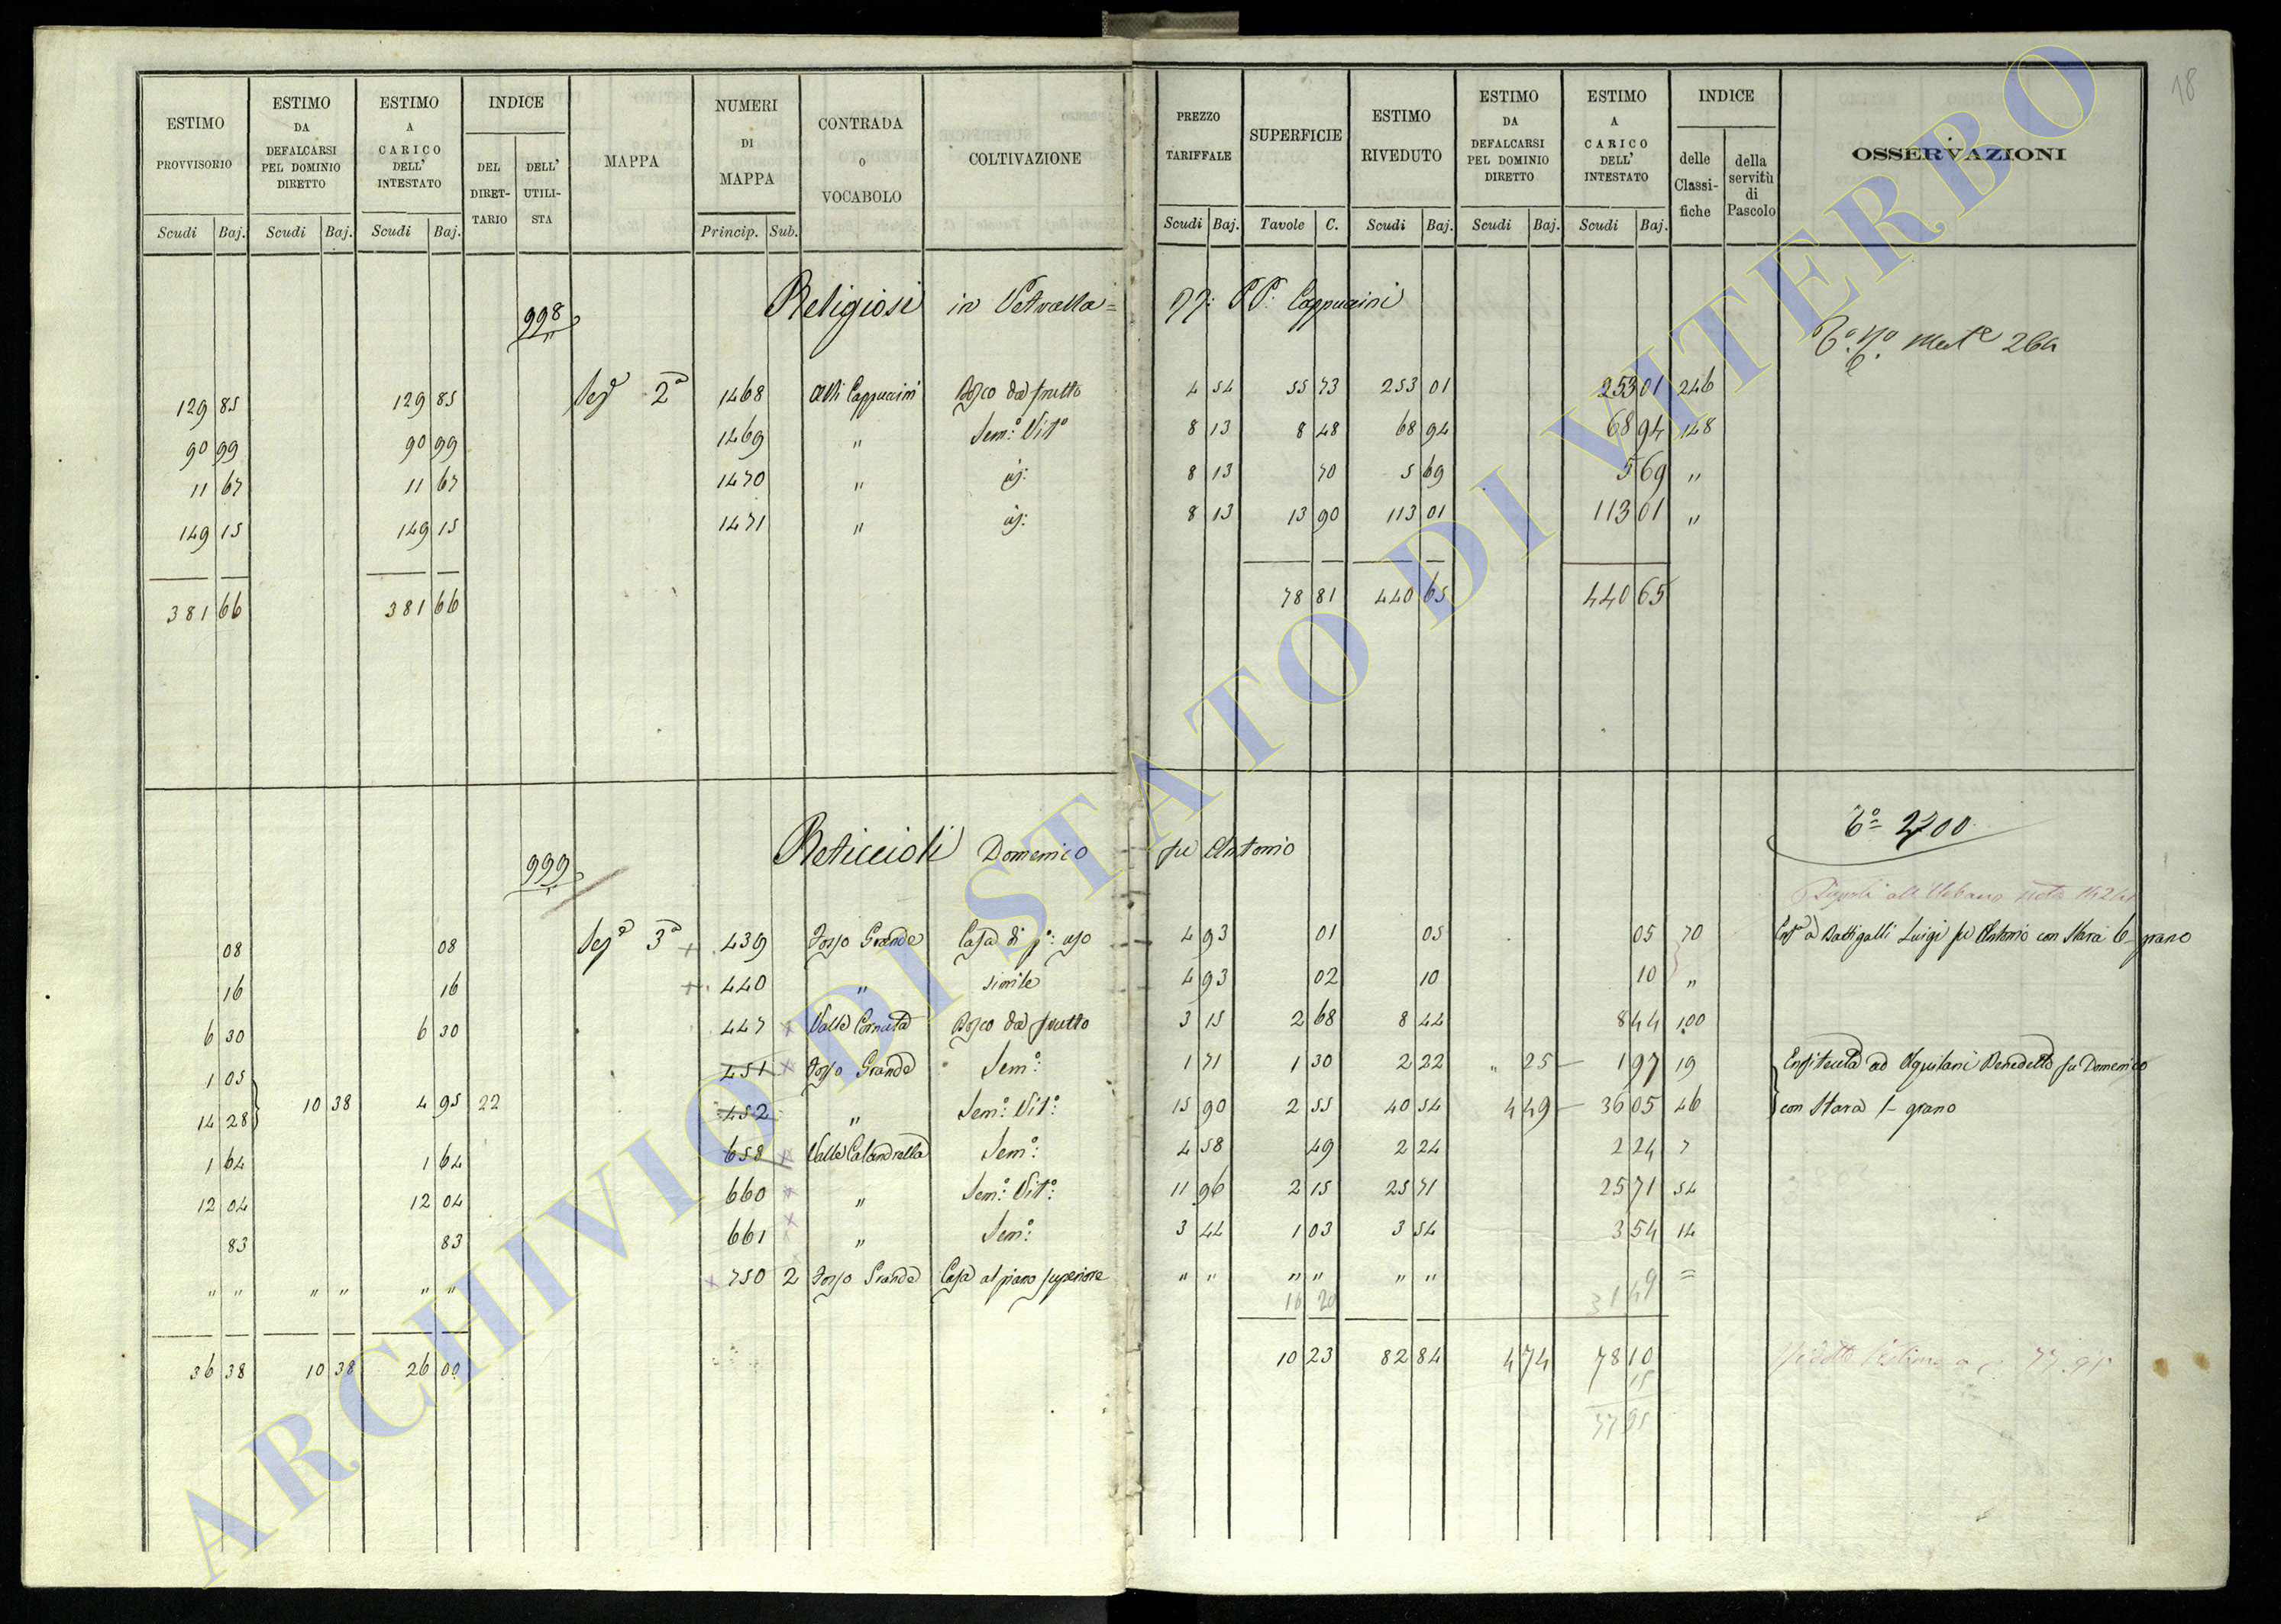 18
ESTIMO PROVVISORIO | ESTIMO DA DEFALCARSI PEL DOMINIO DIRETTO | ESTIMO A CARICO DELL' INTESTATO | INDICE DEL DIRET-TARIO | DELL' UTILI-STA | MAPPA | NUMERI DI MAPPA | CONTRADA O VOCABOLO | COLTIVAZIONE | PREZZO TARIFFALE | SUPERFICIE | ESTIMO RIVEDUTO | ESTIMO DA DEFALCARSI PEL DOMINIO DIRETTO | ESTIMO A CARICO DELL' INTESTATO | INDICE delle Classi-fiche | della servitù di Pascolo | OSSERVAZIONI
Scudi | Baj. | Scudi | Baj. | Scudi | Baj. | Princip. | Sub. | Scudi | Baj. | Tavole | C. | Scudi | Baj. | Scudi | Baj. | Scudi | Baj.
998 Religiosi in Vetralla = PP: Cappuccini
129 85 | 129 85 | Sez.ª 2ª | 1468 | Alli Cappuccini | Bosco da frutto | 4 54 | 55 73 | 253 01 | 253 01 | 246
90 99 | 90 99 | 1469 | " | Sem.° Vit.° | 8 13 | 8 48 | 68 94 | 68 94 | 148
11 67 | 11 67 | 1470 | " | 8 13 | 70 | 5 69 | 5 69 | "
149 15 | 149 15 | 1471 | " | 8 13 | 13 90 | 113 01 | 113 01 | "
381 66 | 381 66 | 78 81 | 440 65 | 440 65
999 Reticcioli Domenico fu Antonio
6° = 2700
08 | 08 | Sez.ª 3ª | 439 | Fosso Grande | Casa di p.° uso | 4 93 | 01 | 05 | 05 | 70 | Enf.ª a Battigalli Luigi fu Antonio con Stara 6 - grano
16 | 16 | 440 | " | simile | 4 93 | 02 | 10 | 10 | "
6 30 | 6 30 | 447 | Valle Cornuta | Bosco da frutto | 3 15 | 2 68 | 8 44 | 8 44 | 100
1 05 | 451 | Fosso Grande | Sem.° | 1 71 | 1 30 | 2 22 | " 25 | 1 97 | 19 | Enfiteuta ad Aquilani Benedetto fu Domenico
14 28 | 10 38 | 4 95 | 22 | 452 | " | Sem.° Vit.° | 15 90 | 2 55 | 40 54 | 4 49 | 36 05 | 46 | con Stara 1 - grano
1 64 | 1 64 | 658 | Valle Calandrella | Sem.° | 4 58 | 49 | 2 24 | 2 24 | 7
12 04 | 12 04 | 660 | " | Sem.° Vit.° | 11 96 | 2 15 | 25 71 | 25 71 | 54
83 | 83 | 661 | " | Sem.° | 3 44 | 1 03 | 3 54 | 3 54 | 14
" " | " " | " " | 750 | 2 | Fosso Grande | Casa al piano superiore | " " | " " | " " | =
16 20 | 31 49
36 38 | 10 38 | 26 00 | 10 23 | 82 84 | 4 74 | 78 10
15
77 95
ARCHIVIO DI STATO DI VITERBO